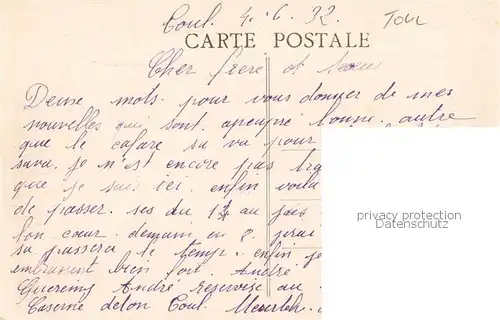 Toul. 4.6.32. Toul
CARTE POSTALE
Cher frere et soeur
Deuse mots. pour vous donner de mes
nouvelles qui sont. apeupre bonne. autre
que le cafare sa va pour
sava. je n'est encore pas
que je suis ici. enfin voila
de passer. ses du au
bon cœur. demain en 8. j'irai
sa passera le temp. enfin je
embrassent bien fort. André
André reserviste au
Caserne Toul.
privacy protection
Datenschutz